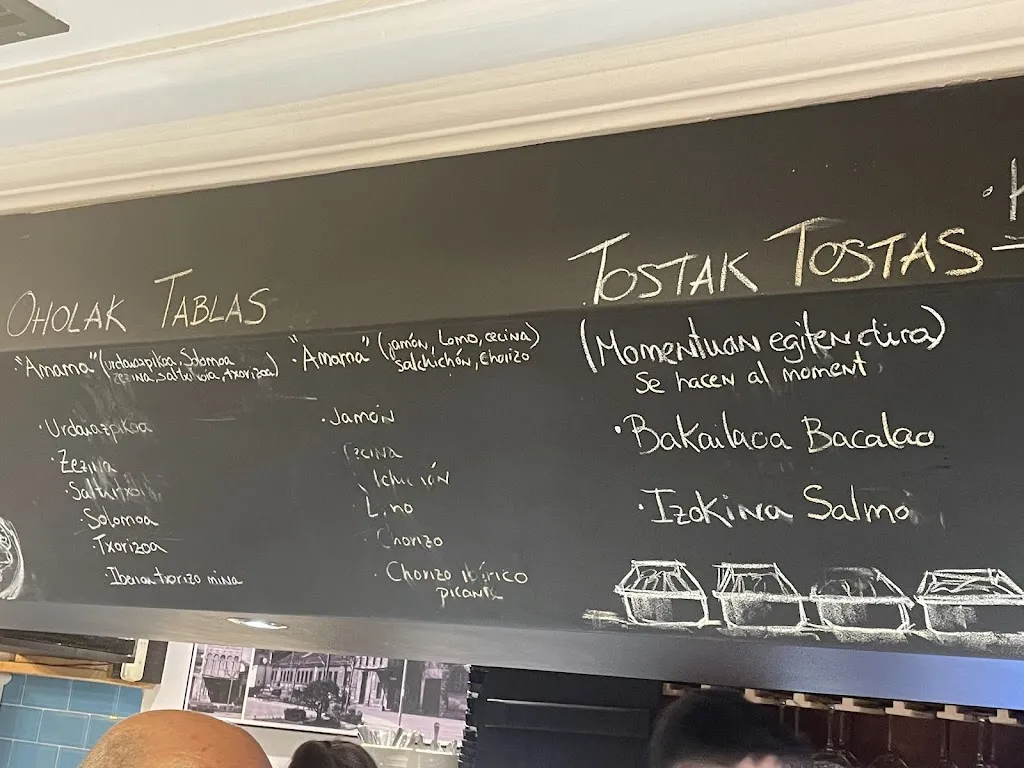 OHOLAK TABLAS
"Amama" (urdaiazpikoa, Solomoa
zezina, saltxitxoia, txorizoa)
· Urdaiazpikoa
· Zezina
· Saltxitxoi
· Solomoa
· Txorizoa
· Iberiar txorizo mina
· "Amama" (jamón, Lomo, cecina)
salchichón, chorizo
· Jamón
cecina
lchi ión
L no
Chorizo
· Chorizo ibérico
picante
TOSTAK TOSTAS
(Momentuan egiten dira)
Se hacen al moment
· Bakailaoa Bacalao
· Izokina Salmo